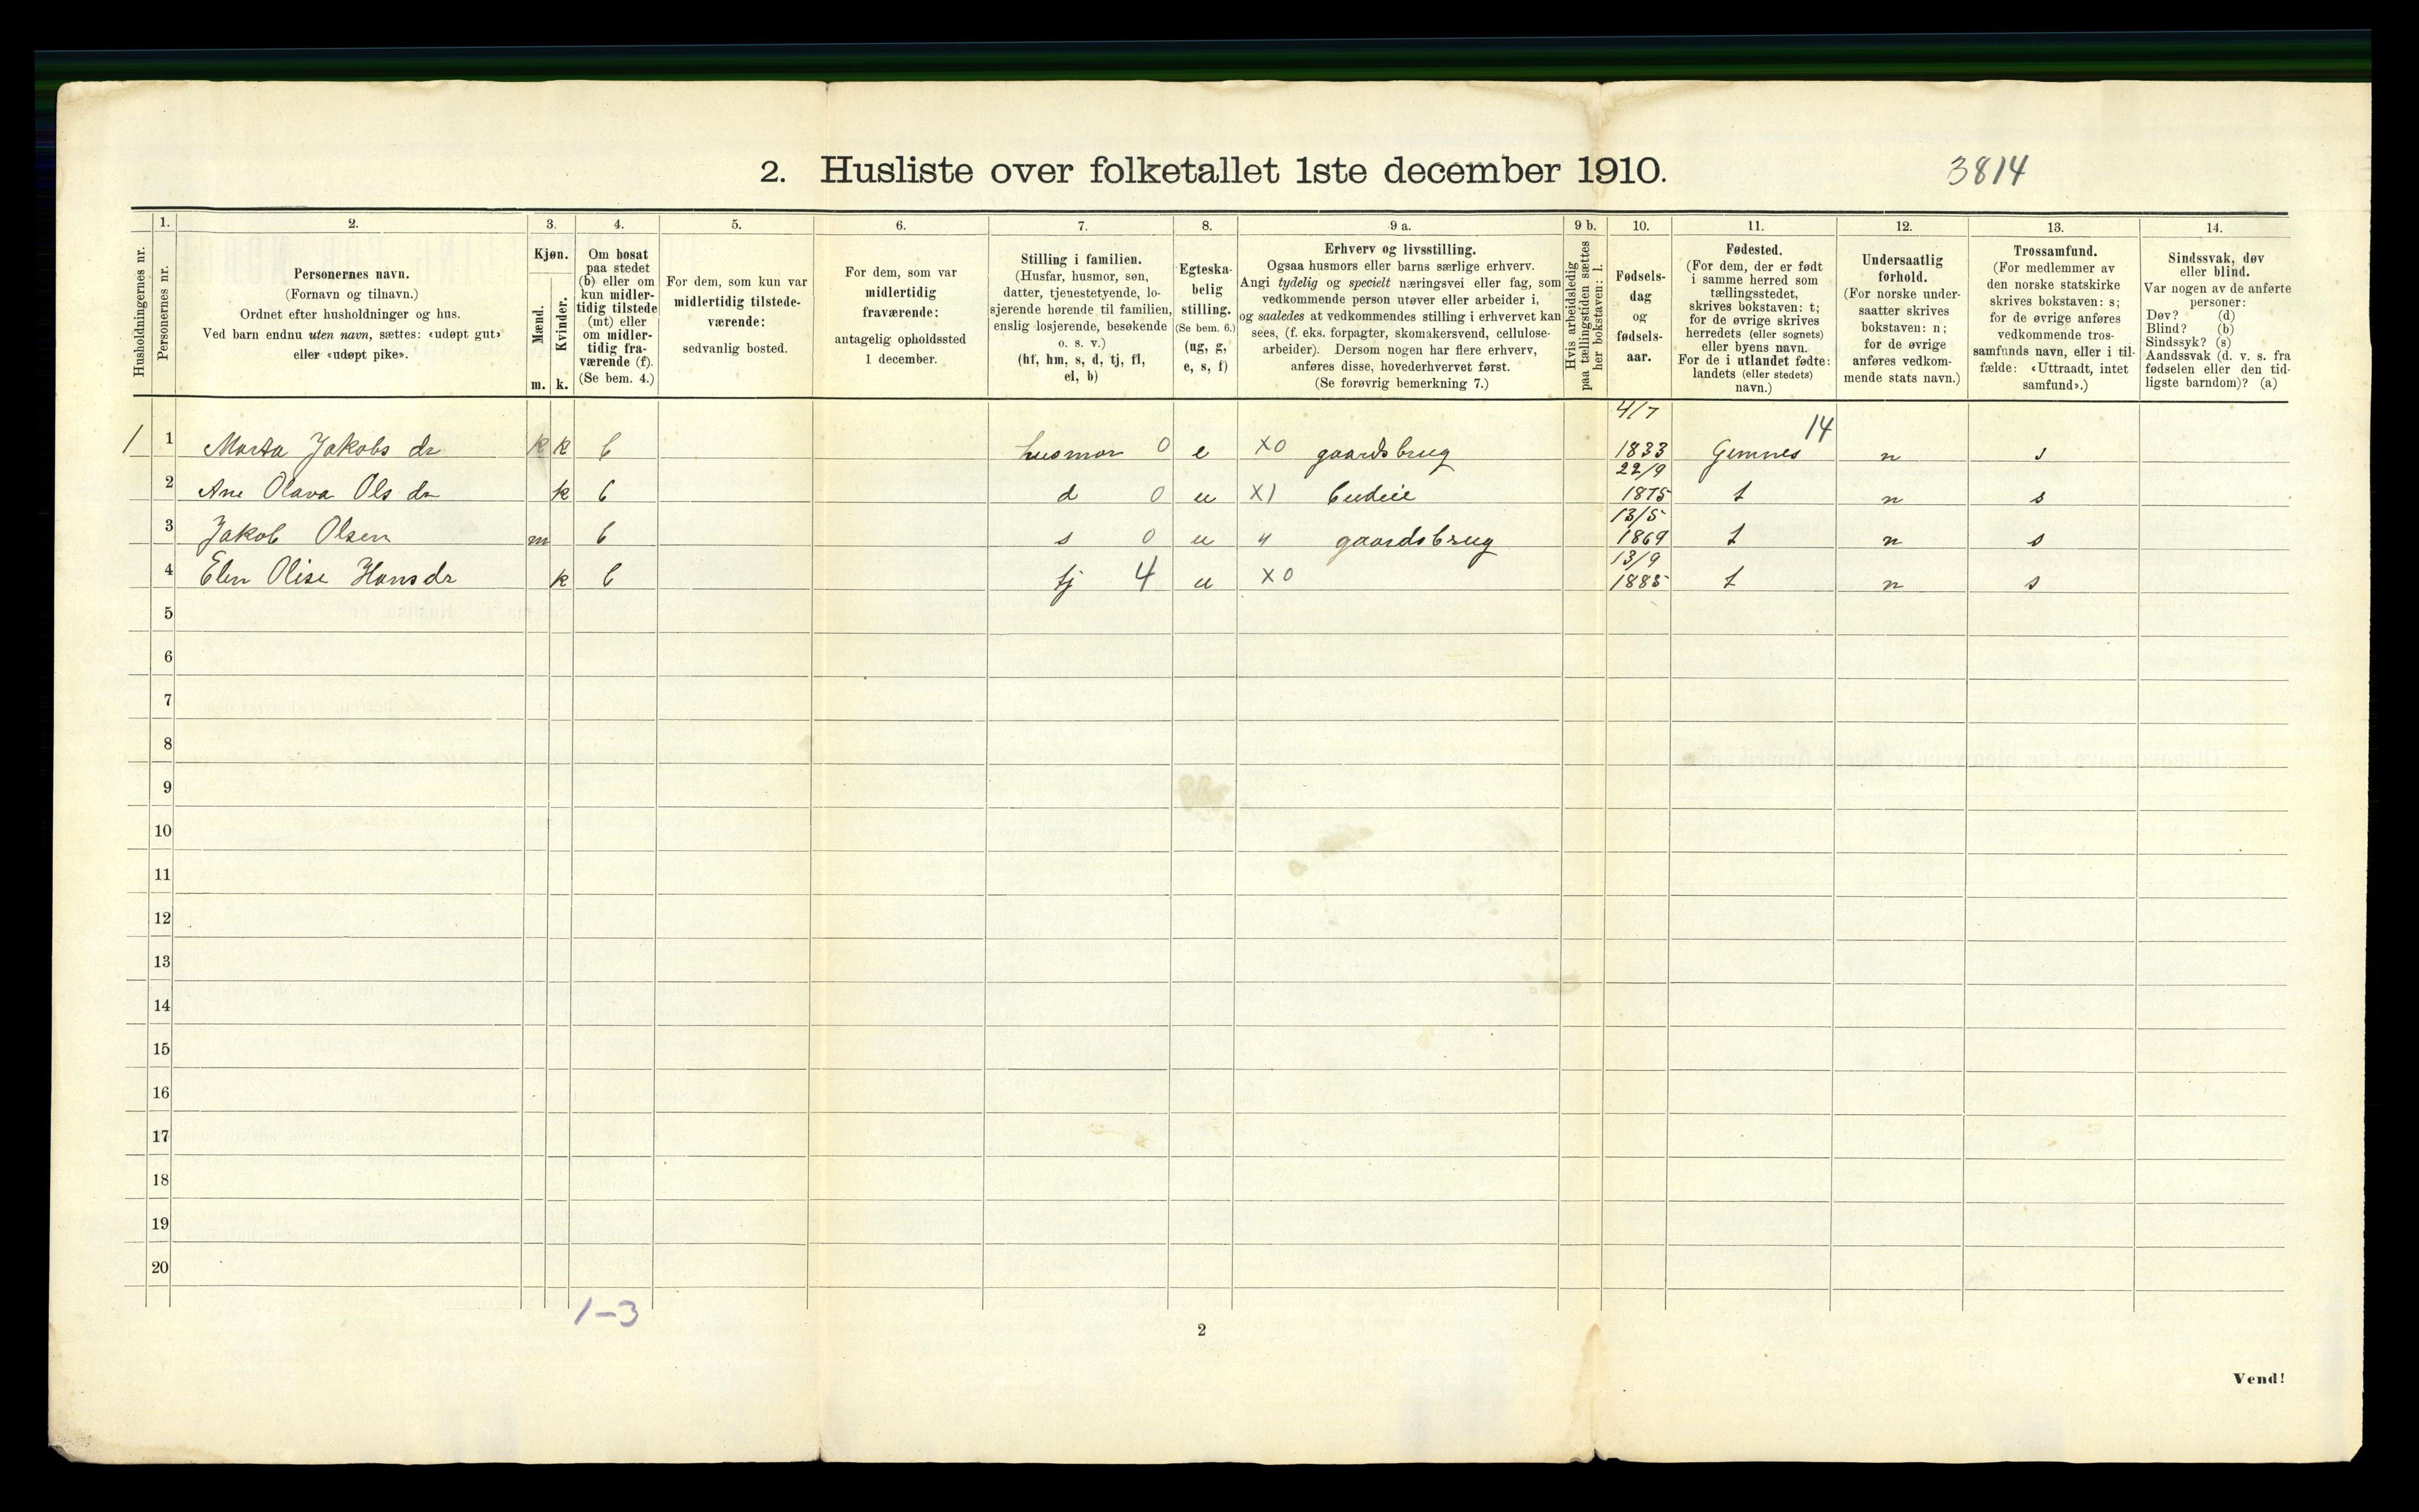 2. Husliste over folketallet 1ste december 1910.
3814
Husholdningernes nr.
1.
Personernes nr.
2.
Personernes navn.
(Fornavn og tilnavn.)
Ordnet efter husholdninger og hus.
Ved barn endnu uten navn, sættes: «udøpt gut»
eller «udøpt pike».
3.
Kjøn.
Mænd.
Kvinder.
m. k.
4.
Om bosat
paa stedet
(b) eller om
kun midler-
tidig tilstede
(mt) eller
om midler-
tidig fra-
værende (f).
(Se bem. 4.)
5.
For dem, som kun var
midlertidig tilstede-
værende:
sedvanlig bosted.
6.
For dem, som var
midlertidig
fraværende:
antagelig opholdssted
1 december.
7.
Stilling i familien.
(Husfar, husmor, søn,
datter, tjenestetyende, lo-
sjerende hørende til familien,
enslig losjerende, besøkende
o. s. v.)
(hf, hm, s, d, tj, fl,
el, b)
8.
Egteska-
belig
stilling.
(Se bem. 6.)
(ug, g,
e, s, f)
9 a.
Erhverv og livsstilling.
Ogsaa husmors eller barns særlige erhverv.
Angi tydelig og specielt næringsvei eller fag, som
vedkommende person utøver eller arbeider i,
og saaledes at vedkommendes stilling i erhvervet kan
sees, (f. eks. forpagter, skomakersvend, cellulose-
arbeider). Dersom nogen har flere erhverv,
anføres disse, hovederhvervet først.
(Se forøvrig bemerkning 7.)
9 b.
Hvis arbeidsledig
paa tællingstiden sættes
her bokstaven: l.
10.
Fødsels-
dag
og
fødsels-
aar.
11.
Fødested.
(For dem, der er født
i samme herred som
tællingsstedet,
skrives bokstaven: t;
for de øvrige skrives
herredets (eller sognets)
eller byens navn.
For de i utlandet fødte:
landets (eller stedets)
navn.)
12.
Undersaatlig
forhold.
(For norske under-
saatter skrives
bokstaven: n;
for de øvrige
anføres vedkom-
mende stats navn.)
13.
Trossamfund.
(For medlemmer av
den norske statskirke
skrives bokstaven: s;
for de øvrige anføres
vedkommende tros-
samfunds navn, eller i til-
fælde: «Uttraadt, intet
samfund».)
14.
Sindssvak, døv
eller blind.
Var nogen av de anførte
personer:
Døv? (d)
Blind? (b)
Sindssyk? (s)
Aandssvak (d. v. s. fra
fødselen eller den tid-
ligste barndom)? (a)
4/7 14
1 1 Marta Jakobs dr k k b husmor 0 e X0 gaardsbrug 1833 Gimnes n s
22/9
2 Ane Olava Ols dr k b d 0 u X1 budeie 1875 t n s
13/5
3 Jakob Olsen m b s 0 u " gaardsbrug 1869 t n s
13/9
4 Elen Olise Hansdr k b tj 4 u X0 1885 t n s
5
6
7
8
9
10
11
12
13
14
15
16
17
18
19
20
1–3
2
Vend!